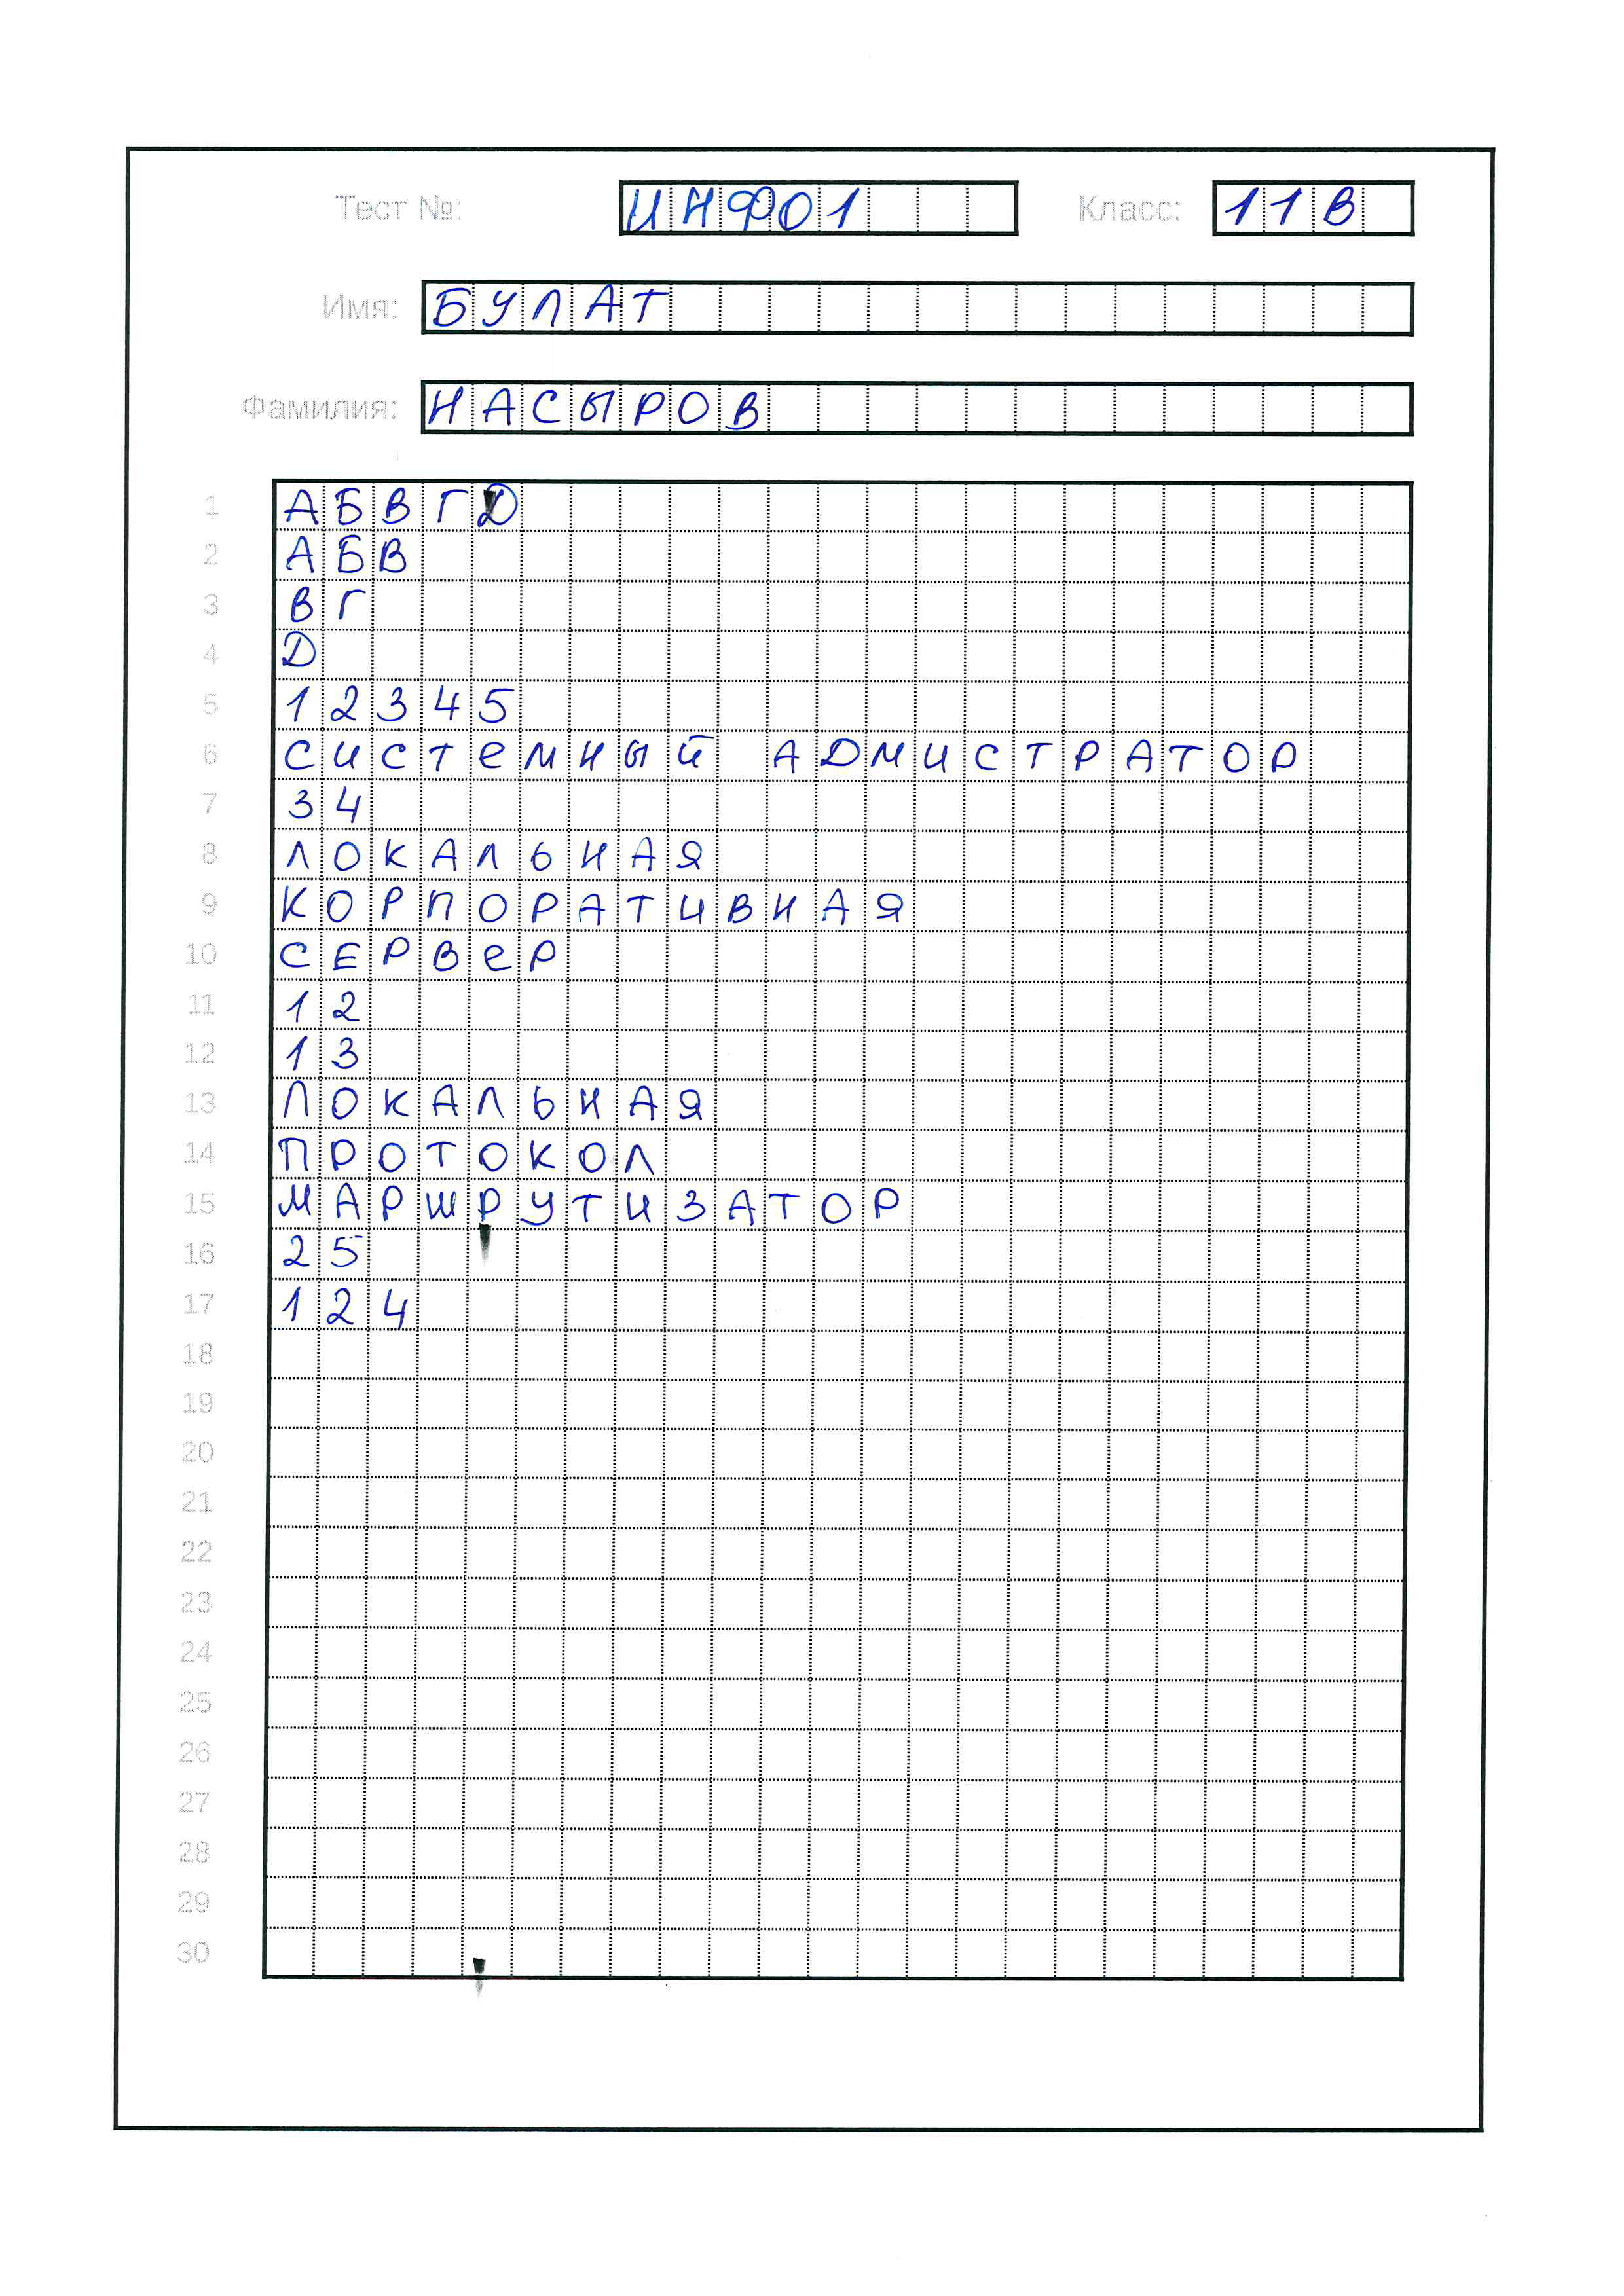 Тест №: ИНФО1 Класс: 11В
Имя: БУЛАТ
Фамилия: НАСЫРОВ
1 АБВГД
2 АБВ
3 ВГ
4 Д
5 12345
6 СИСТЕМНЫЙ АДМИСТРАТОР
7 34
8 ЛОКАЛЬНАЯ
9 КОРПОРАТИВНАЯ
10 СЕРВЕР
11 12
12 13
13 ЛОКАЛЬНАЯ
14 ПРОТОКОЛ
15 МАРШРУТИЗАТОР
16 25
17 124
18
19
20
21
22
23
24
25
26
27
28
29
30